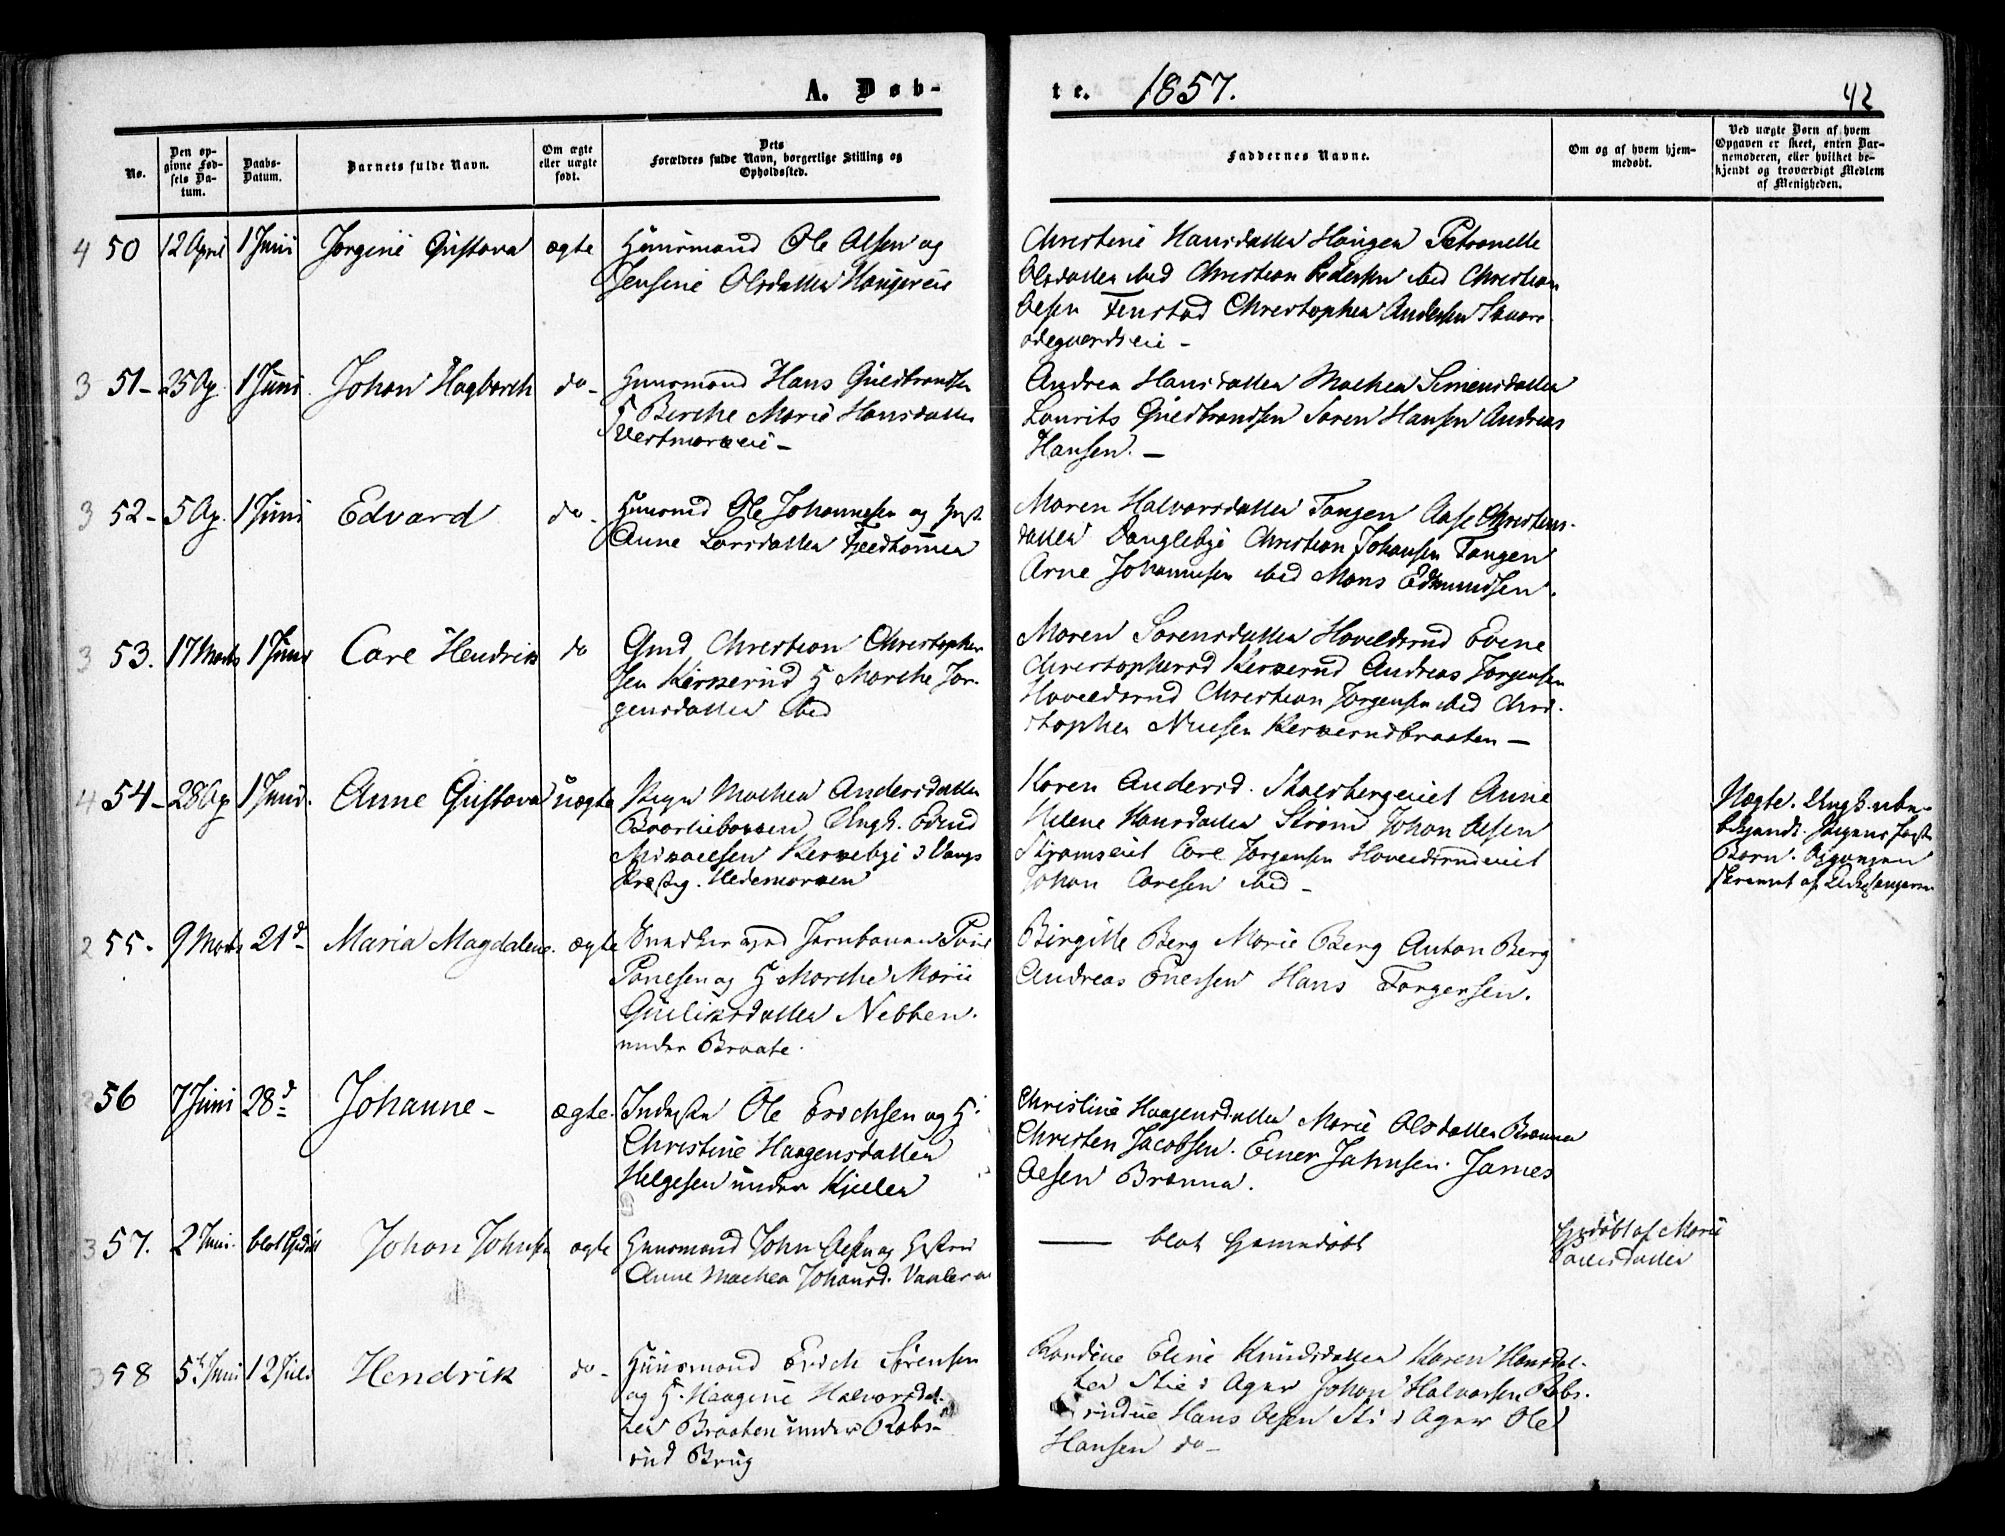 A. Døb-
te. 1857. 42
No.
Den op-
givne Fød-
sels Da-
tum.
Daabs-
Datum.
Barnets fulde Navn.
Om ægte
eller uægte
født.
Dets
Forældres fulde Navn, borgerlige Stilling og
Opholdssted.
Faddernes Navne.
Om og af hvem hjem-
medøbt.
Ved uægte Børn af hvem
Opgaven er skeet, enten Bar-
nemoderen, eller hvilket be-
kjendt og troværdigt Medlem
af Menigheden.
4 50 12 April 1 Juni Jørgine Gustava ægte Huusmand Ole Olsen og
Jensine Olsdatter Haugereie
Christine Hansdatter Haugen Petronelle
Olsdatter ibid Christian Pedersen ibid Christian
Olsen Finstad Christopher Andersen
ødegaardseie -
3 51- 25 Ap. 1 Juni Johan Hagbarth do- Huusmand Hans Guldbrandsen
H Birthe Marie Hansdatter
Vestmoreie -
Andrea Hansdatter Mathea Simensdatter
Laurits Guldbrandsen Søren Hansen Andreas
Hansen. -
3 52- 5 Ap. 1 Juni Edvard do- Huusmd Ole Johannesen og Hust.
Anne Larsdatter
Maren Halvorsdatter Tangen Aase Christens-
datter Danglebye Christian Johansen Tangen
Arne Johannesen ibid Mons Edmundsen.
3 53. 17 Marts 1 Juni Carl Hendrik do Gmd Christian Christopher-
sen Kirkerud H Marthe Jør-
gensdatter ibid
Maren Sørensdatter Hovelsrud Eline
Christophersd Kirkerud Andreas Jørgensen
Hovelsrud Christian Jørgensen ibid Chri-
stopher Nielsen Kirkerudbraaten -
4 54- 28 Ap 1 Juni. Anne Gustava uægte Pige Mathea Andersdatter
Ungk. Edvard
Mikaelsen Kirkebye i Vangs
Præstg. Hedemarken
Karen Andersd. Anne
Helene Hansdatter Strøm Johan Olsen
Strømseiet Carl Jørgensen Hovelsrudeiet
Johan Carlsen ibid -
Uægte. Ungk. ube-
Børn. Opgaven
af Kirkesangeren
2 55- 9 Marts 21 d- Maria Magdalene. ægte Snedker ved Jernbanen
og H Marthe Marie
Gulliksdatter Nebben
under Braate.
Birgitte Berg Marie Berg Anton Berg
Andreas Hans Torgersen.
56 7 Juni 28 d- Johanne- ægte. Inderst Ole Erichsen og H.
Christine Haagensdatter
Helgesen under Kjeller
Christine Haagensdatter Marie Olsdatter Brænna
Christen Jacobsen. Einer Jahnsen. James
Olsen Brænna.
3 57. 2 Juni. blot Hjdøbt Johan Johnsen ægte Huusmand John Olsen og Hustru
Anne Mathea Johansd. Vaaler
— blot hjemdøbt
Hjdøbt af Marie
Pallesdatter
3 58 5te Juni 12 Juli Hendrik do- Huusmand Erich Sørensen
og H. Haagine Halvorsdat-
ter Braaten under Robs-
rud Brug
Randine Eline Knudsdatter Karen Hansdat-
ter Stie i Ager Johan Halvorsen Robs-
rudeie Hans Olsen Sti i Ager Ole
Hansen do-